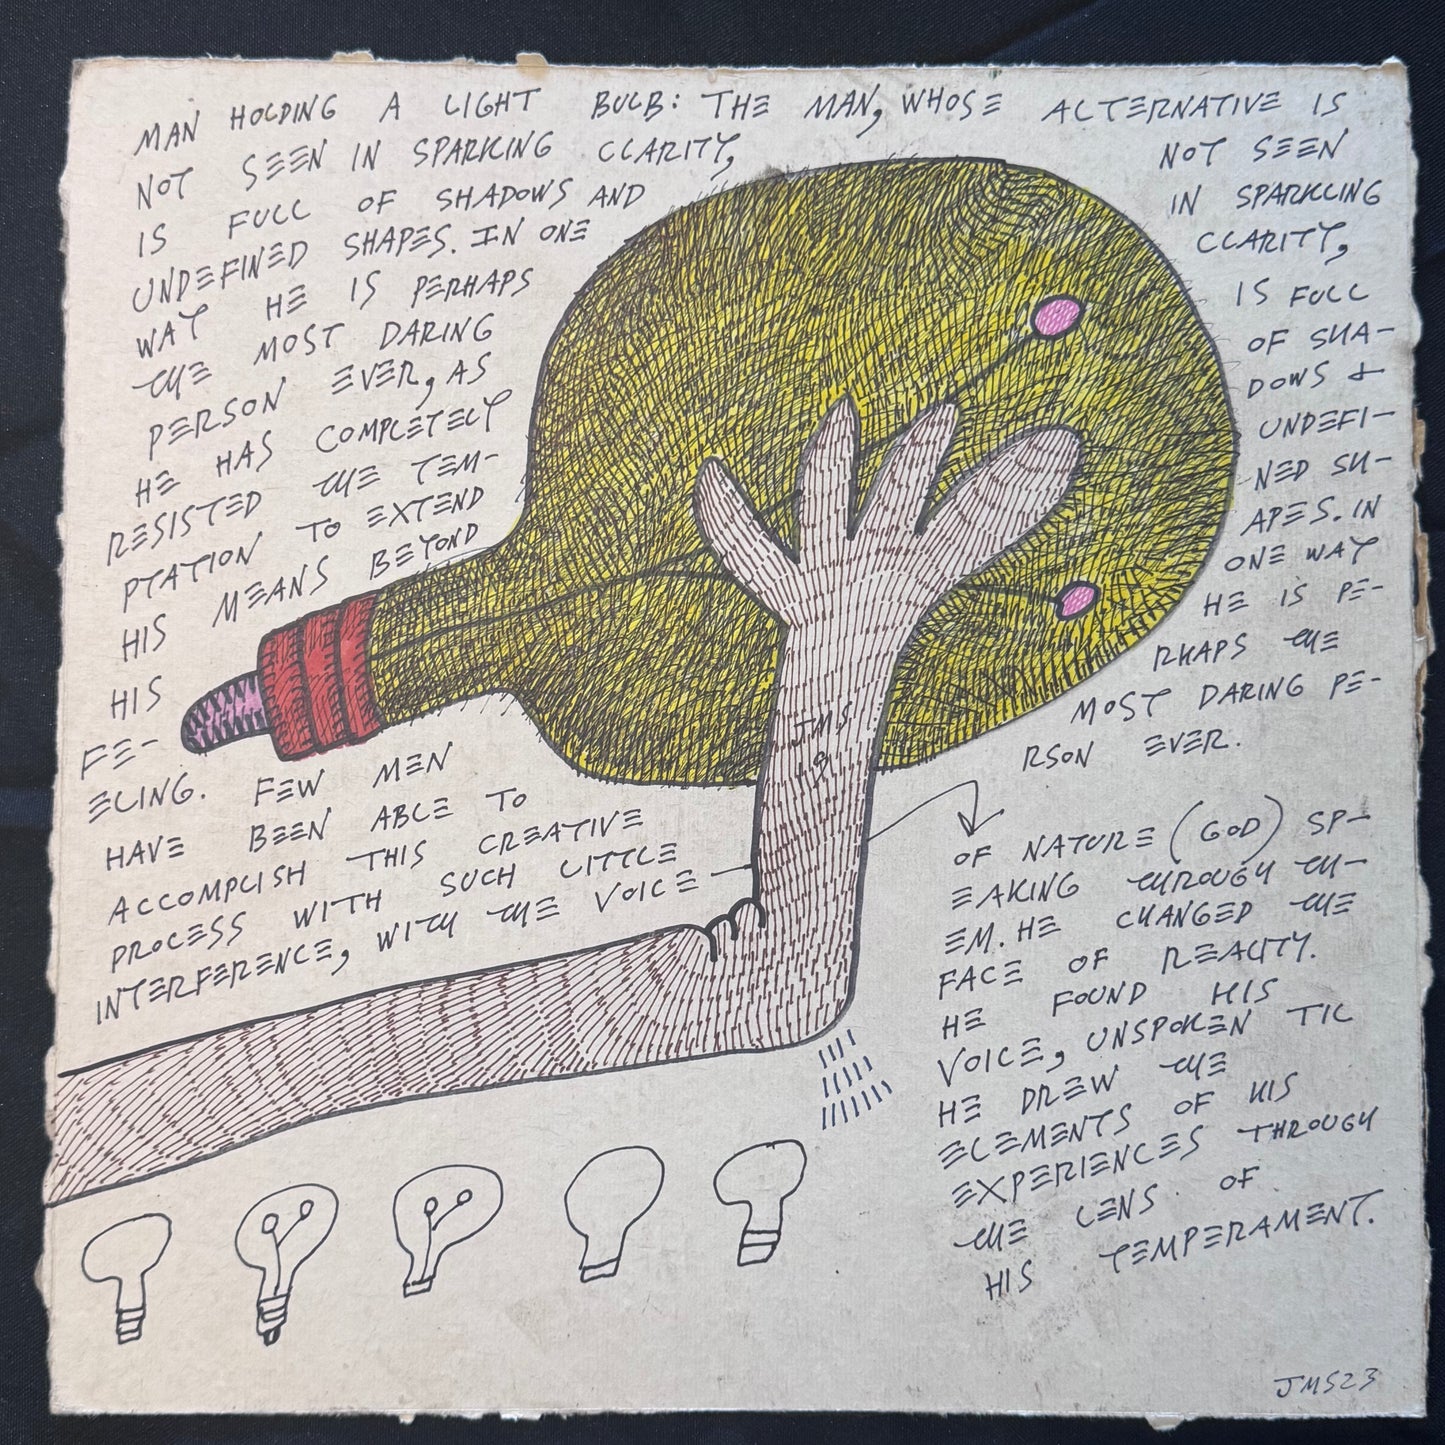 MAN HOLDING A LIGHT BULB: THE MAN, WHOSE ALTERNATIVE IS
NOT SEEN IN SPARKLING CLARITY,
IS FULL OF SHADOWS AND
UNDEFINED SHAPES. IN ONE
WAY HE IS PERHAPS
THE MOST DARING
PERSON EVER, AS
HE HAS COMPLETELY
RESISTED THE TEM-
PTATION TO EXTEND
HIS MEANS BEYOND
HIS
FE-
ELING. FEW MEN
HAVE BEEN ABLE TO
ACCOMPLISH THIS CREATIVE
PROCESS WITH SUCH LITTLE
INTERFERENCE, WITH THE VOICE
NOT SEEN
IN SPARKLING
CLARITY,
IS FULL
OF SHA-
DOWS &
UNDEFI-
NED SH-
APES. IN
ONE WAY
HE IS PE-
RHAPS THE
MOST DARING PE-
RSON EVER.
OF NATURE (GOD) SP-
EAKING THROUGH TH-
EM. HE CHANGED THE
FACE OF REALITY.
HE FOUND HIS
VOICE, UNSPOKEN TIL
HE DREW THE
ELEMENTS OF HIS
EXPERIENCES THROUGH
THE LENS OF
HIS TEMPERAMENT.
JMS
JMS23